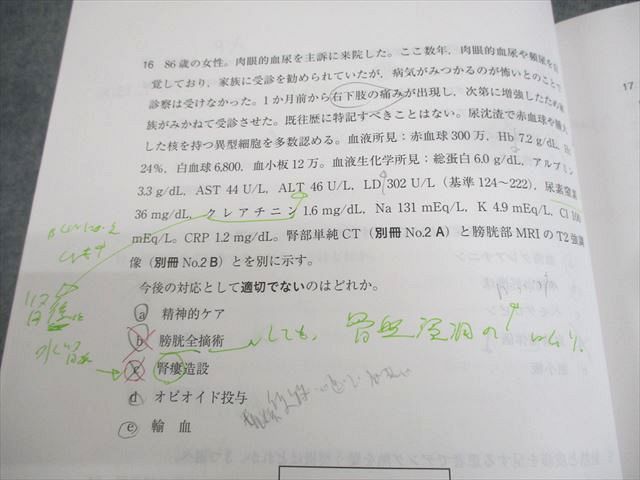 16 86歳の女性。肉眼的血尿を主訴に来院した。ここ数年，肉眼的血尿や頻尿を自
覚しており，家族に受診を勧められていたが，病気がみつかるのが怖いとのことで
診察は受けなかった。1か月前から右下肢の痛みが出現し，次第に増強したため家
族がみかねて受診させた。既往歴に特記すべきことはない。尿沈渣で赤血球や腫大
した核を持つ異型細胞を多数認める。血液所見：赤血球300万，Hb 7.2 g/dL，Ht
24%，白血球6,800，血小板12万。血液生化学所見：総蛋白6.0 g/dL，アルブミン
3.3 g/dL，AST 44 U/L，ALT 46 U/L，LD 302 U/L（基準124〜222），尿素窒素
36 mg/dL，クレアチニン1.6 mg/dL，Na 131 mEq/L，K 4.9 mEq/L，Cl 100
mEq/L。CRP 1.2 mg/dL。腎部単純CT（別冊No.2 A）と膀胱部MRIのT2強調
像（別冊No.2 B）とを別に示す。
今後の対応として適切でないのはどれか。
a 精神的ケア
b 膀胱全摘術
しても，骨盤
c 腎瘻造設
水腎
d オピオイド投与
e 輸血
17